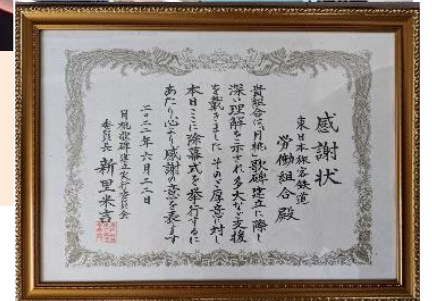 感謝状
東日本旅客鉄道
労働組合殿
貴組合は、「月桃」歌碑建立に際し
深い理解を示され多大なご支援
を戴きました そのご厚意に対し
本日ここに除幕式を挙行するに
あたり、心より感謝の意を表します
二〇二二年六月二二日
月桃歌碑建立実行委員会
委員長 新里米吉